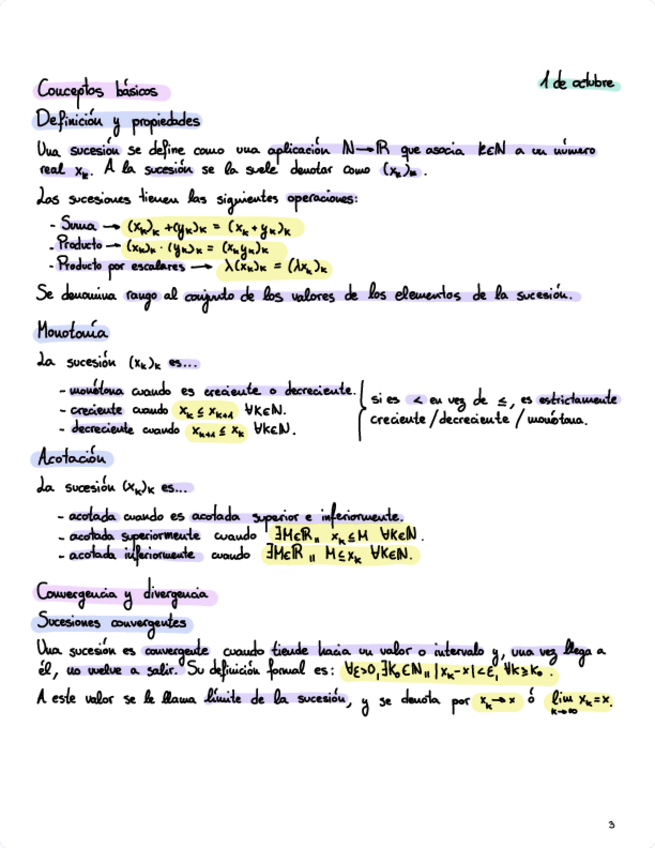 1 de octubre
Conceptos básicos
Definición y propiedades
Una sucesión se define como una aplicación N→R que asocia k∈N a un número
real xₖ. A la sucesión se la suele denotar como (xₖ)ₖ.
Las sucesiones tienen las siguientes operaciones:
- Suma → (xₖ)ₖ + (yₖ)ₖ = (xₖ + yₖ)ₖ
- Producto → (xₖ)ₖ · (yₖ)ₖ = (xₖyₖ)ₖ
- Producto por escalares → λ(xₖ)ₖ = (λxₖ)ₖ
Se denomina rango al conjunto de los valores de los elementos de la sucesión.
Monotonía
La sucesión (xₖ)ₖ es...
- monótona cuando es creciente o decreciente.
- creciente cuando xₖ ≤ xₖ₊₁ ∀k∈N.
- decreciente cuando xₖ₊₁ ≤ xₖ ∀k∈N.
si es < en vez de ≤, es estrictamente
creciente / decreciente / monótona.
Acotación
La sucesión (xₖ)ₖ es...
- acotada cuando es acotada superior e inferiormente.
- acotada superiormente cuando ∃M∈R,, xₖ ≤ M ∀k∈N.
- acotada inferiormente cuando ∃M∈R,, M ≤ xₖ ∀k∈N.
Convergencia y divergencia
Sucesiones convergentes
Una sucesión es convergente cuando tiende hacia un valor o intervalo y, una vez llega a
él, no vuelve a salir. Su definición formal es: ∀ε>0, ∃k₀∈N,, |xₖ-x|<ε, ∀k≥k₀.
A este valor se le llama límite de la sucesión, y se denota por xₖ→x ó lim xₖ = x.
k→∞
3